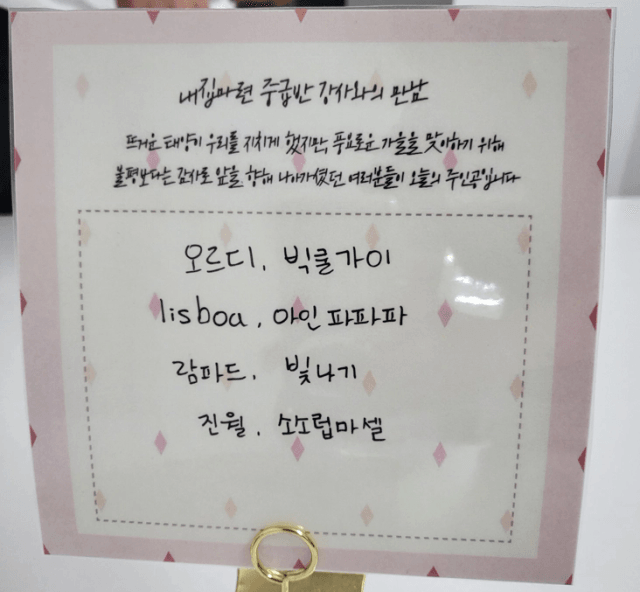 내집마련 중급반 강사와의 만남
뜨거운 태양이 우리를 지치게 했지만, 풍요로운 가을을 맞이하기 위해
불평보다는 감사로 앞을 향해 나아가셨던 여러분들이 오늘의 주인공입니다
오르디, 빅쿨가이
lisboa, 아인파파파
람파드, 빛나기
진월, 소소럽마셀